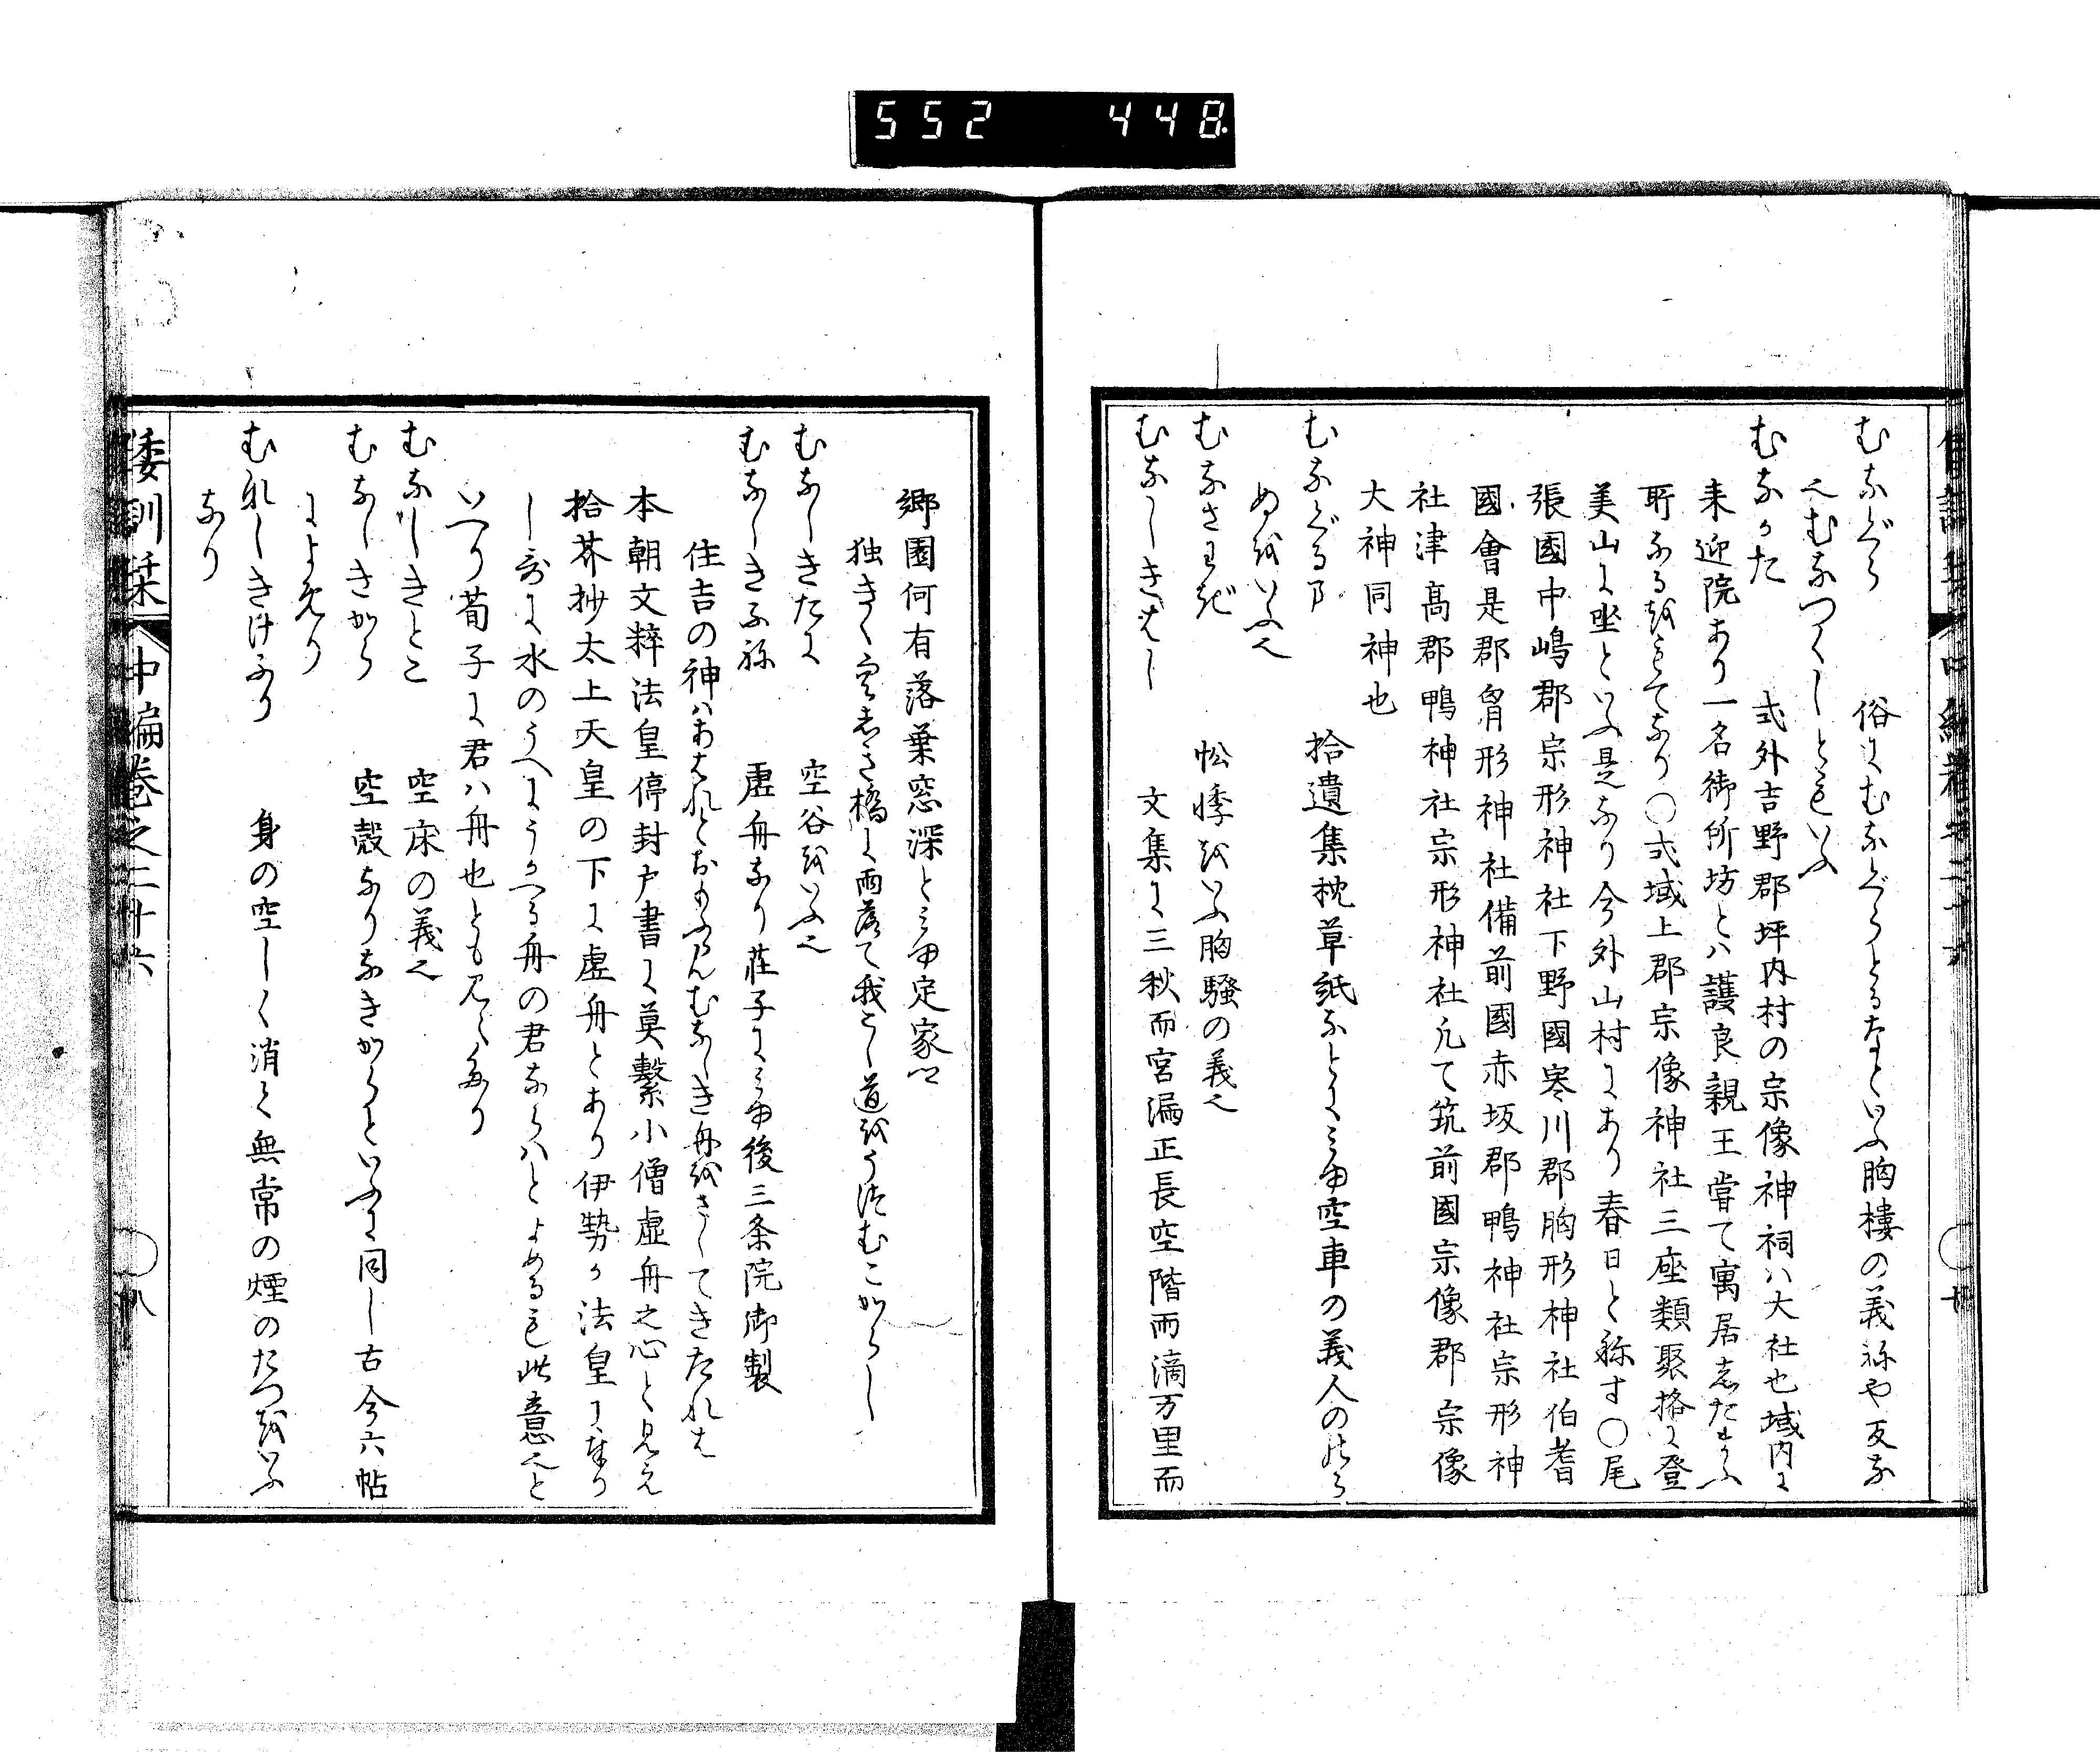 552 448
むなぐら 俗にむなぐらとるなどいふ胸樓の義ねや反な
也むなつくしともいふ
むなかた 式外吉野郡坪内村の宗像神祠ハ大社也域内に
来迎院あり一名御所坊とハ護良親王甞て寓居したまふ
所なるをもてなり〇式城上郡宗像神社三座類聚格に登
美山に坐といふ是なり今外山村にあり春日と称す〇尾
張國中嶋郡宗形神社下野國寒川郡胸形神社伯耆
國會是郡胷形神社備前國赤坂郡鴨神社宗形神
社津髙郡鴨神社宗形神社凡て筑前國宗像郡宗像
大神同神也
むなぐるま 拾遺集枕草紙なとに見ゆ空車の義人ののら
ぬをいふ也
むなさわぎ 忪悸をいふ胸騒の義也
むなしきはし 文集に三秋而宮漏正長空階雨滴万里而
郷園何有落葉窓深と見ゆ定家卿
独きく空しき橋に雨落て我こし道をうつむこからし
むなしきたに 空谷をいふ也
むなしきふね 虚舟なり荘子に見ゆ後三条院御製
住吉の神ハあはれとおもふらんむなしき舟をさしてきたれは
本朝文粹法皇停封戸書に莫繫小僧虚舟之心と見え
拾芥抄太上天皇の下に虚舟とあり伊勢か法皇に奉り
し哥に水のうへにうかへる舟の君ならハとよめるも此意也と
いへり荀子に君ハ舟也とも見えたり
むなしきとこ 空床の義也
むなしきから 空殼なりなきからといふに同し古今六帖
によめり
むなしきけふり 身の空しく消て無常の煙のたつをいふ
なり
倭訓栞 中編巻之二十六 〇八